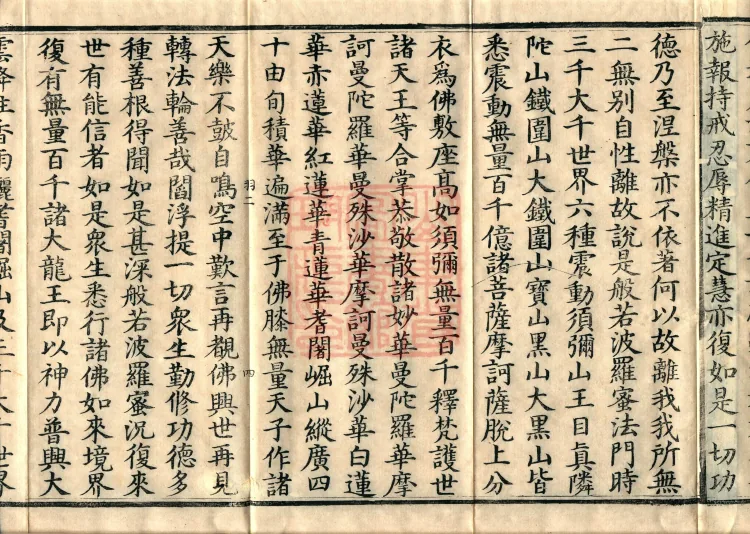 施報持戒忍辱精進定慧亦復如是一切功
德乃至涅槃亦不依著何以故離我我所無
二無别自性離故說是般若波羅蜜法門時
三千大千世界六種震動須彌山王目真隣
陀山鐵圍山大鐵圍山寶山黑山大黑山皆
悉震動無量百千億諸菩薩摩訶薩脫上分
衣爲佛敷座髙如須彌無量百千釋梵護世
諸天王等合掌恭敬散諸妙華曼陀羅華摩
訶曼陀羅華曼殊沙華摩訶曼殊沙華白蓮
華赤蓮華紅蓮華青蓮華耆闍崛山縱廣四
十由旬積華遍滿至于佛膝無量天子作諸
羽二
四
天樂不鼓自鳴空中歎言再覩佛興世再見
轉法輪善哉閻浮提一切衆生勤修功德多
種善根得聞如是甚深般若波羅蜜況復來
世有能信者如是衆生悉行諸佛如來境界
復有無量百千諸大龍王即以神力普興大
雲降注香雨灑耆闍崛山及三千大千世界